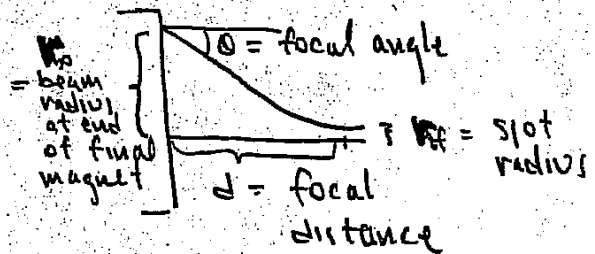 θ = focal angle
r₀
= beam
radius
at end
of final
magnet
rf = spot
radius
d = focal
distance